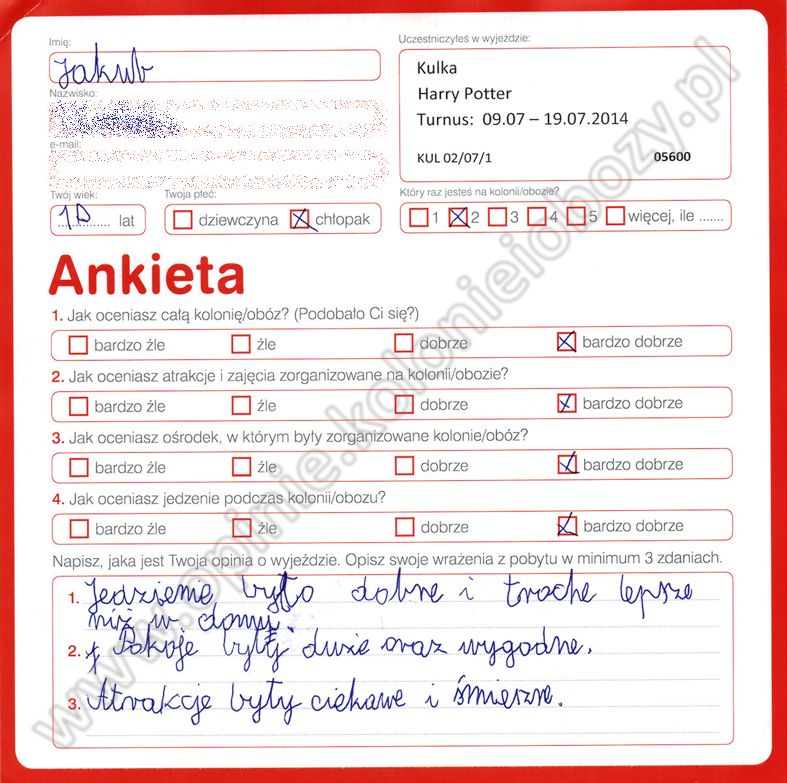 Imię:
Jakub
Nazwisko:
e-mail:
Twój wiek:
10 lat
Twoja płeć:
dziewczyna chłopak
Uczestniczyłeś w wyjeździe:
Kulka
Harry Potter
Turnus: 09.07 – 19.07.2014
KUL 02/07/1 05600
Który raz jesteś na kolonii/obozie?
1 2 3 4 5 więcej, ile .......
Ankieta
1. Jak oceniasz całą kolonię/obóz? (Podobało Ci się?)
bardzo źle źle dobrze bardzo dobrze
2. Jak oceniasz atrakcje i zajęcia zorganizowane na kolonii/obozie?
bardzo źle źle dobrze bardzo dobrze
3. Jak oceniasz ośrodek, w którym były zorganizowane kolonie/obóz?
bardzo źle źle dobrze bardzo dobrze
4. Jak oceniasz jedzenie podczas kolonii/obozu?
bardzo źle źle dobrze bardzo dobrze
Napisz, jaka jest Twoja opinia o wyjeździe. Opisz swoje wrażenia z pobytu w minimum 3 zdaniach.
1. Jedzienie było dobre i troche lepsze
niż w domu.
2. Pokoje były duże oraz wygodne.
3. Atrakcje były ciekawe i śmieszne.
www.opinie.kolonieiobozy.pl